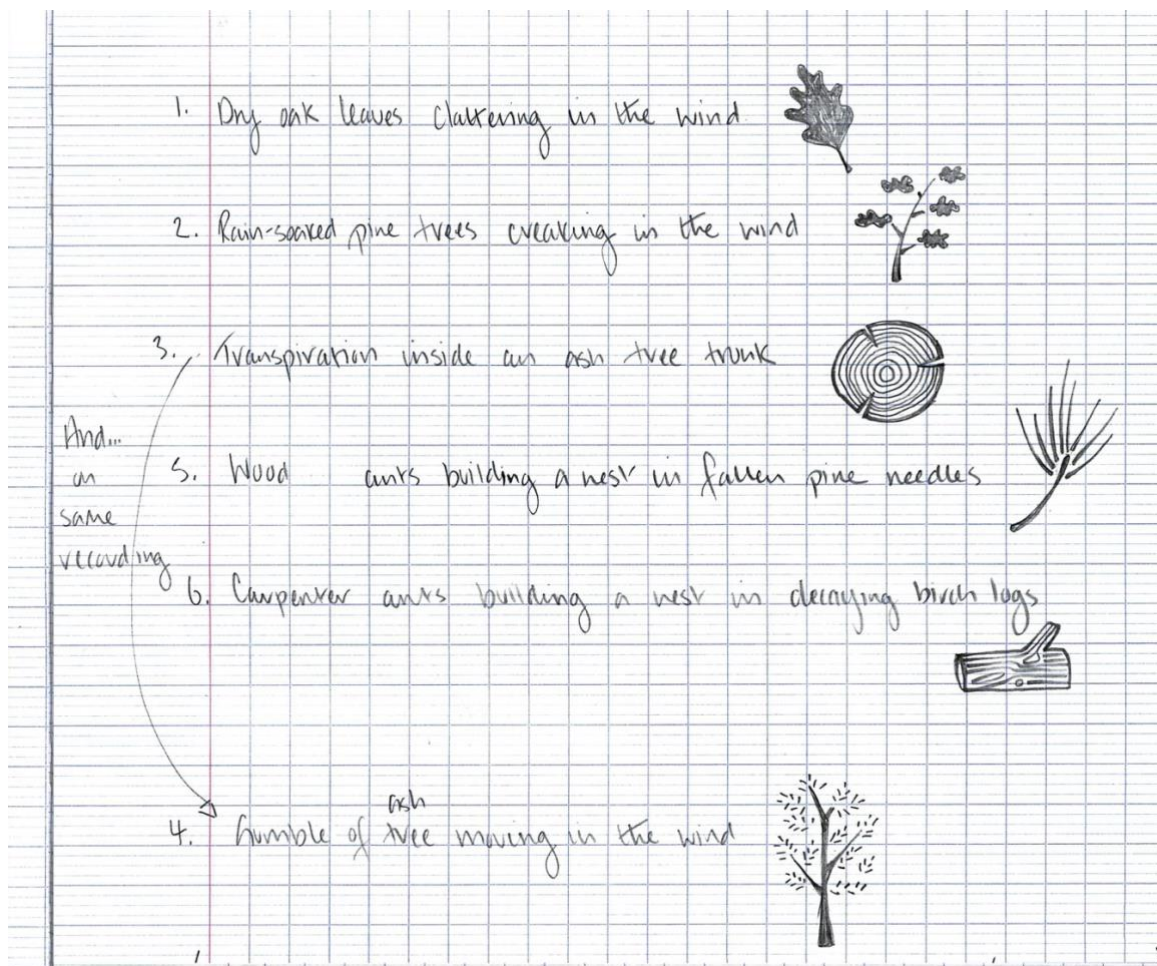 1. Dry oak leaves clattering in the wind
2. Rain-soaked pine trees creaking in the wind
3. Transpiration inside an ash tree trunk
And...
on
same
recording
5. Wood ants building a nest in fallen pine needles
6. Carpenter ants building a nest in decaying birch logs
ash
4. of tree moving in the wind